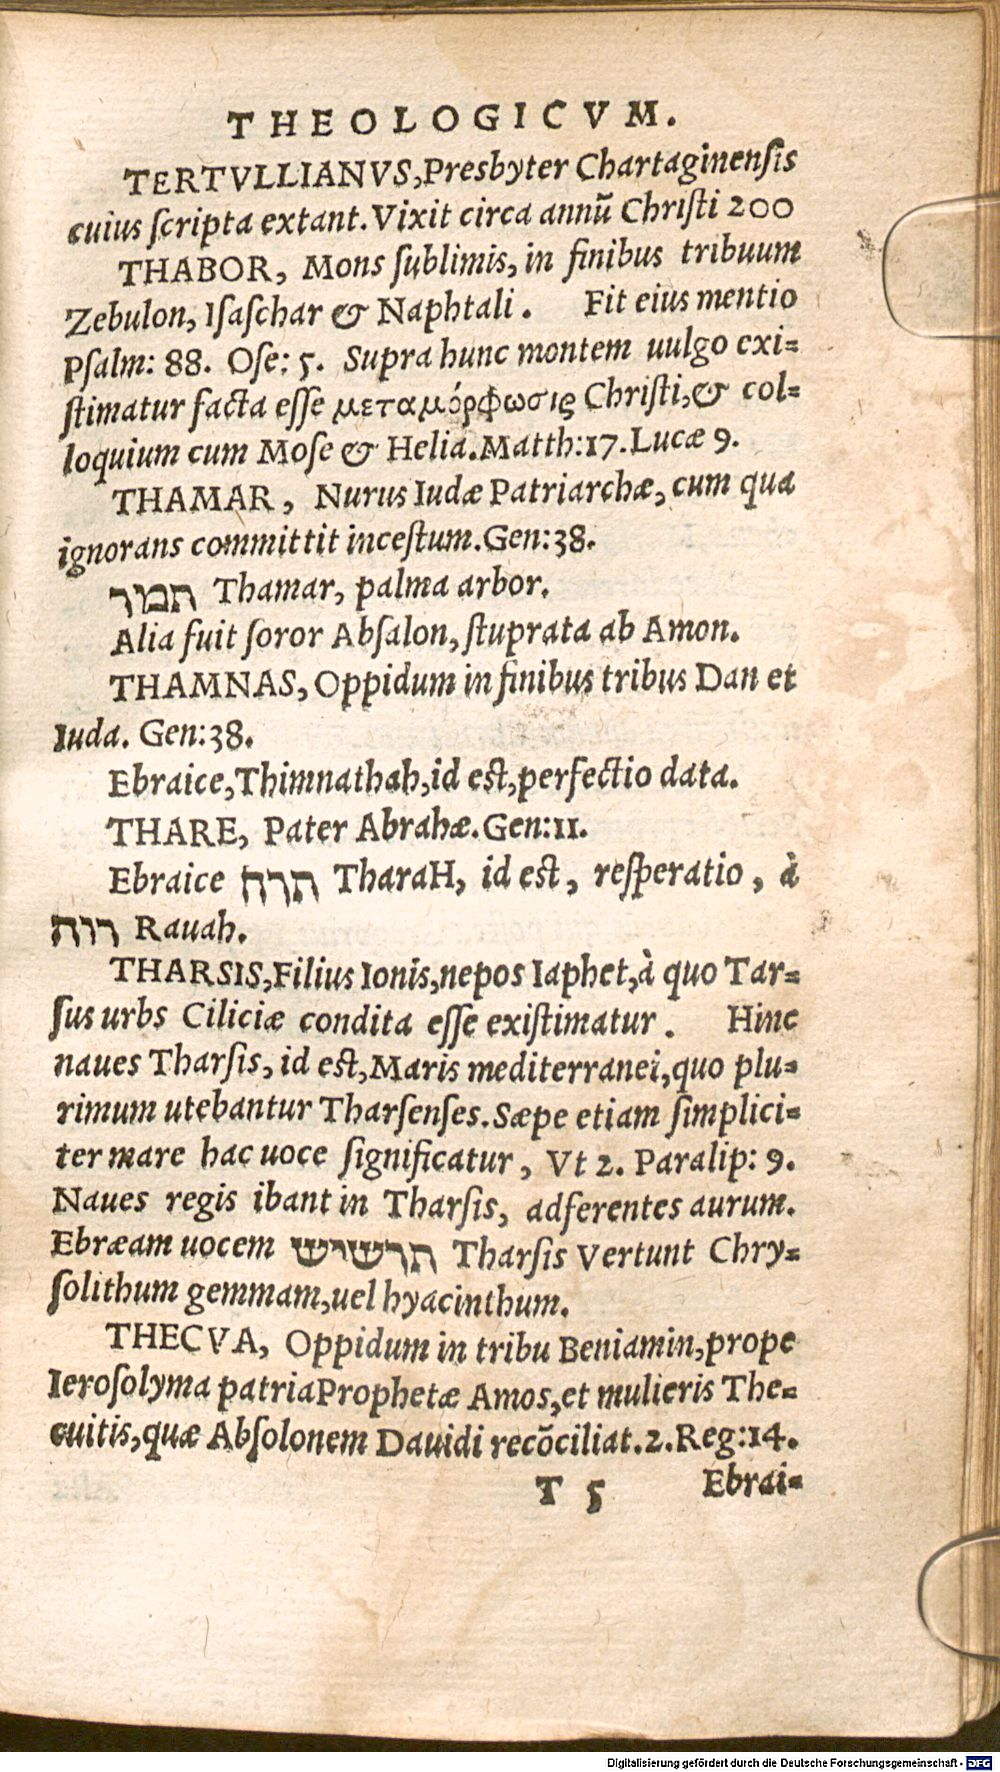 THEOLOGICVM.
TERTVLLIANVS, Presbyter Chartaginensis
cuius scripta extant. Vixit circa annũ Christi 200
THABOR, Mons sublimis, in finibus tribuum
Zebulon, Isaschar & Naphtali. Fit eius mentio
Psalm: 88. Ose: 5. Supra hunc montem uulgo exi=
stimatur facta esse μεταμόρφωσις Christi, & col=
loquium cum Mose & Helia. Matth: 17. Lucæ 9.
THAMAR, Nurus Iudæ Patriarchæ, cum qua
ignorans committit incestum. Gen: 38.
תמר Thamar, palma arbor.
Alia fuit soror Absalon, stuprata ab Amon.
THAMNAS, Oppidum in finibus tribus Dan et
Iuda. Gen: 38.
Ebraice, Thimnathah, id est, perfectio data.
THARE, Pater Abrahæ. Gen: 11.
Ebraice תרח TharaH, id est, resperatio, à
רוה Rauah.
THARSIS, Filius Ionis, nepos Iaphet, à quo Tar=
sus urbs Ciliciæ condita esse existimatur. Hinc
naues Tharsis, id est, Maris mediterranei, quo plu=
rimum utebantur Tharsenses. Sæpe etiam simplici=
ter mare hac uoce significatur, Vt 2. Paralip: 9.
Naues regis ibant in Tharsis, adferentes aurum.
Ebræam uocem תרשיש Tharsis Vertunt Chry=
solithum gemmam, uel hyacinthum.
THECVA, Oppidum in tribu Beniamin, prope
Ierosolyma patria Prophetæ Amos, et mulieris The=
cuitis, quæ Absolonem Dauidi recõciliat. 2. Reg: 14.
T 5 Ebrai=
Digitalisierung gefördert durch die Deutsche Forschungsgemeinschaft - DFG